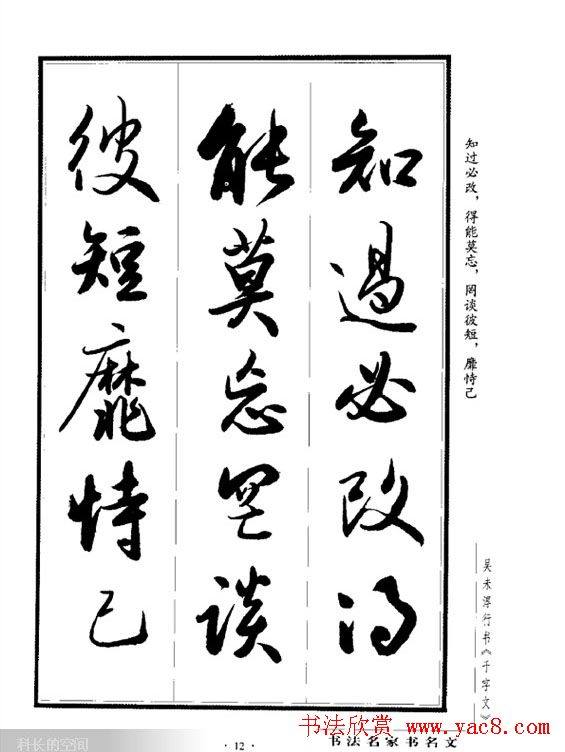 知過必改得
能莫忘罔談
彼短靡恃己
知过必改，得能莫忘，罔谈彼短，靡恃己
吴未淳行书《千字文》
书法欣赏 www.yac8.com
书法名家书名文
·12·
科长的空间